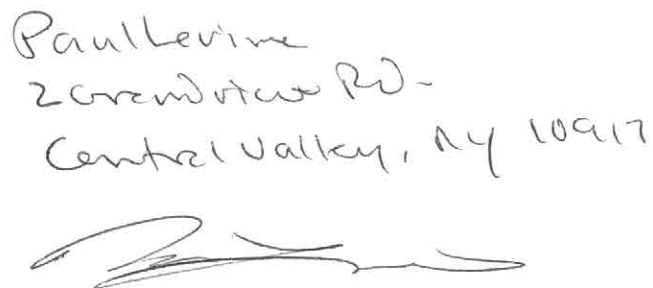 Paul Levine
2 Grandview RD.
Central Valley, NY 10917